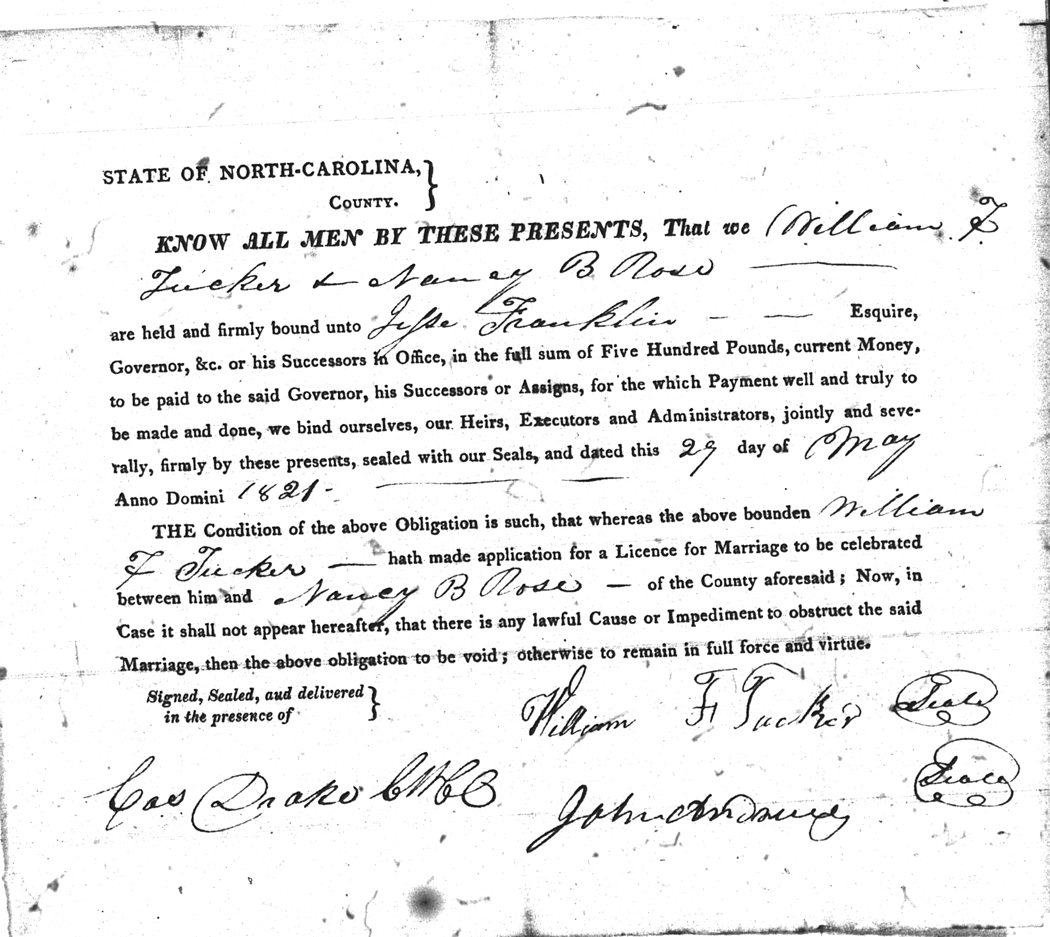 STATE OF NORTH-CAROLINA, }
COUNTY.
KNOW ALL MEN BY THESE PRESENTS, That we William F
Tucker & Nancy B Rose
are held and firmly bound unto Jesse Franklin — — Esquire,
Governor, &c. or his Successors in Office, in the full sum of Five Hundred Pounds, current Money,
to be paid to the said Governor, his Successors or Assigns, for the which Payment well and truly to
be made and done, we bind ourselves, our Heirs, Executors and Administrators, jointly and seve-
rally, firmly by these presents, sealed with our Seals, and dated this 29 day of May
Anno Domini 1821 -
THE Condition of the above Obligation is such, that whereas the above bounden William
F Tucker — hath made application for a Licence for Marriage to be celebrated
between him and Nancy B Rose — of the County aforesaid; Now, in
Case it shall not appear hereafter, that there is any lawful Cause or Impediment to obstruct the said
Marriage, then the above obligation to be void; otherwise to remain in full force and virtue.
Signed, Sealed, aud delivered }
in the presence of
William F Tucker Seal
Drake
John Seal